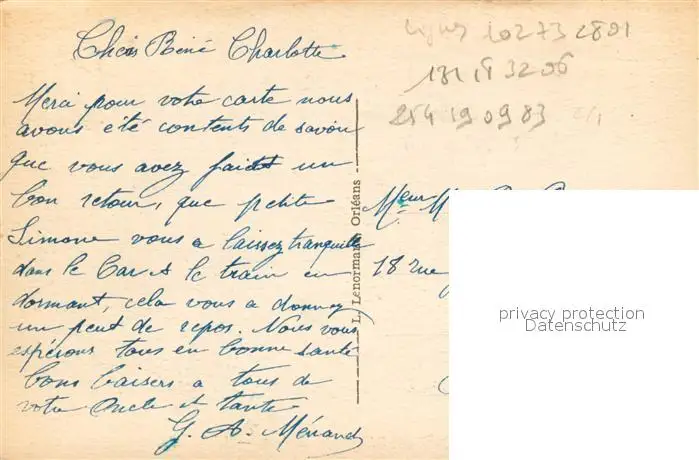 Chers Béné Charlotte
Merci pour votre carte nous
avons été contents de savoir
que vous avez fait un
bon retour, que petite
Simone vous a laissez tranquille
dans le Car & le train en
dormant, cela vous a donnez
un peut de repos. Nous vous
espérons tous en bonne santé
bons baisers a tous de
votre Oncle et tante
G. A. Ménand
L. Lenormand, Orléans
10273 2801
181 18 32 06
254 19 09 83
Meur
18 rue
privacy protection
Datenschutz